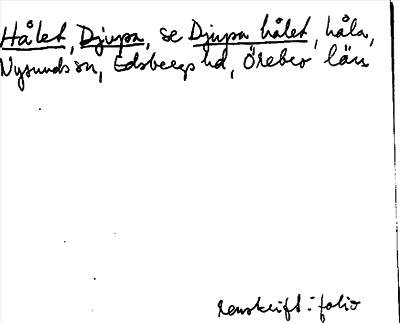 Hålet, Djupa, se Djupa hålet, håla,
Nysunds sn, Edsbergs hd, Örebro län
renskrift: folio